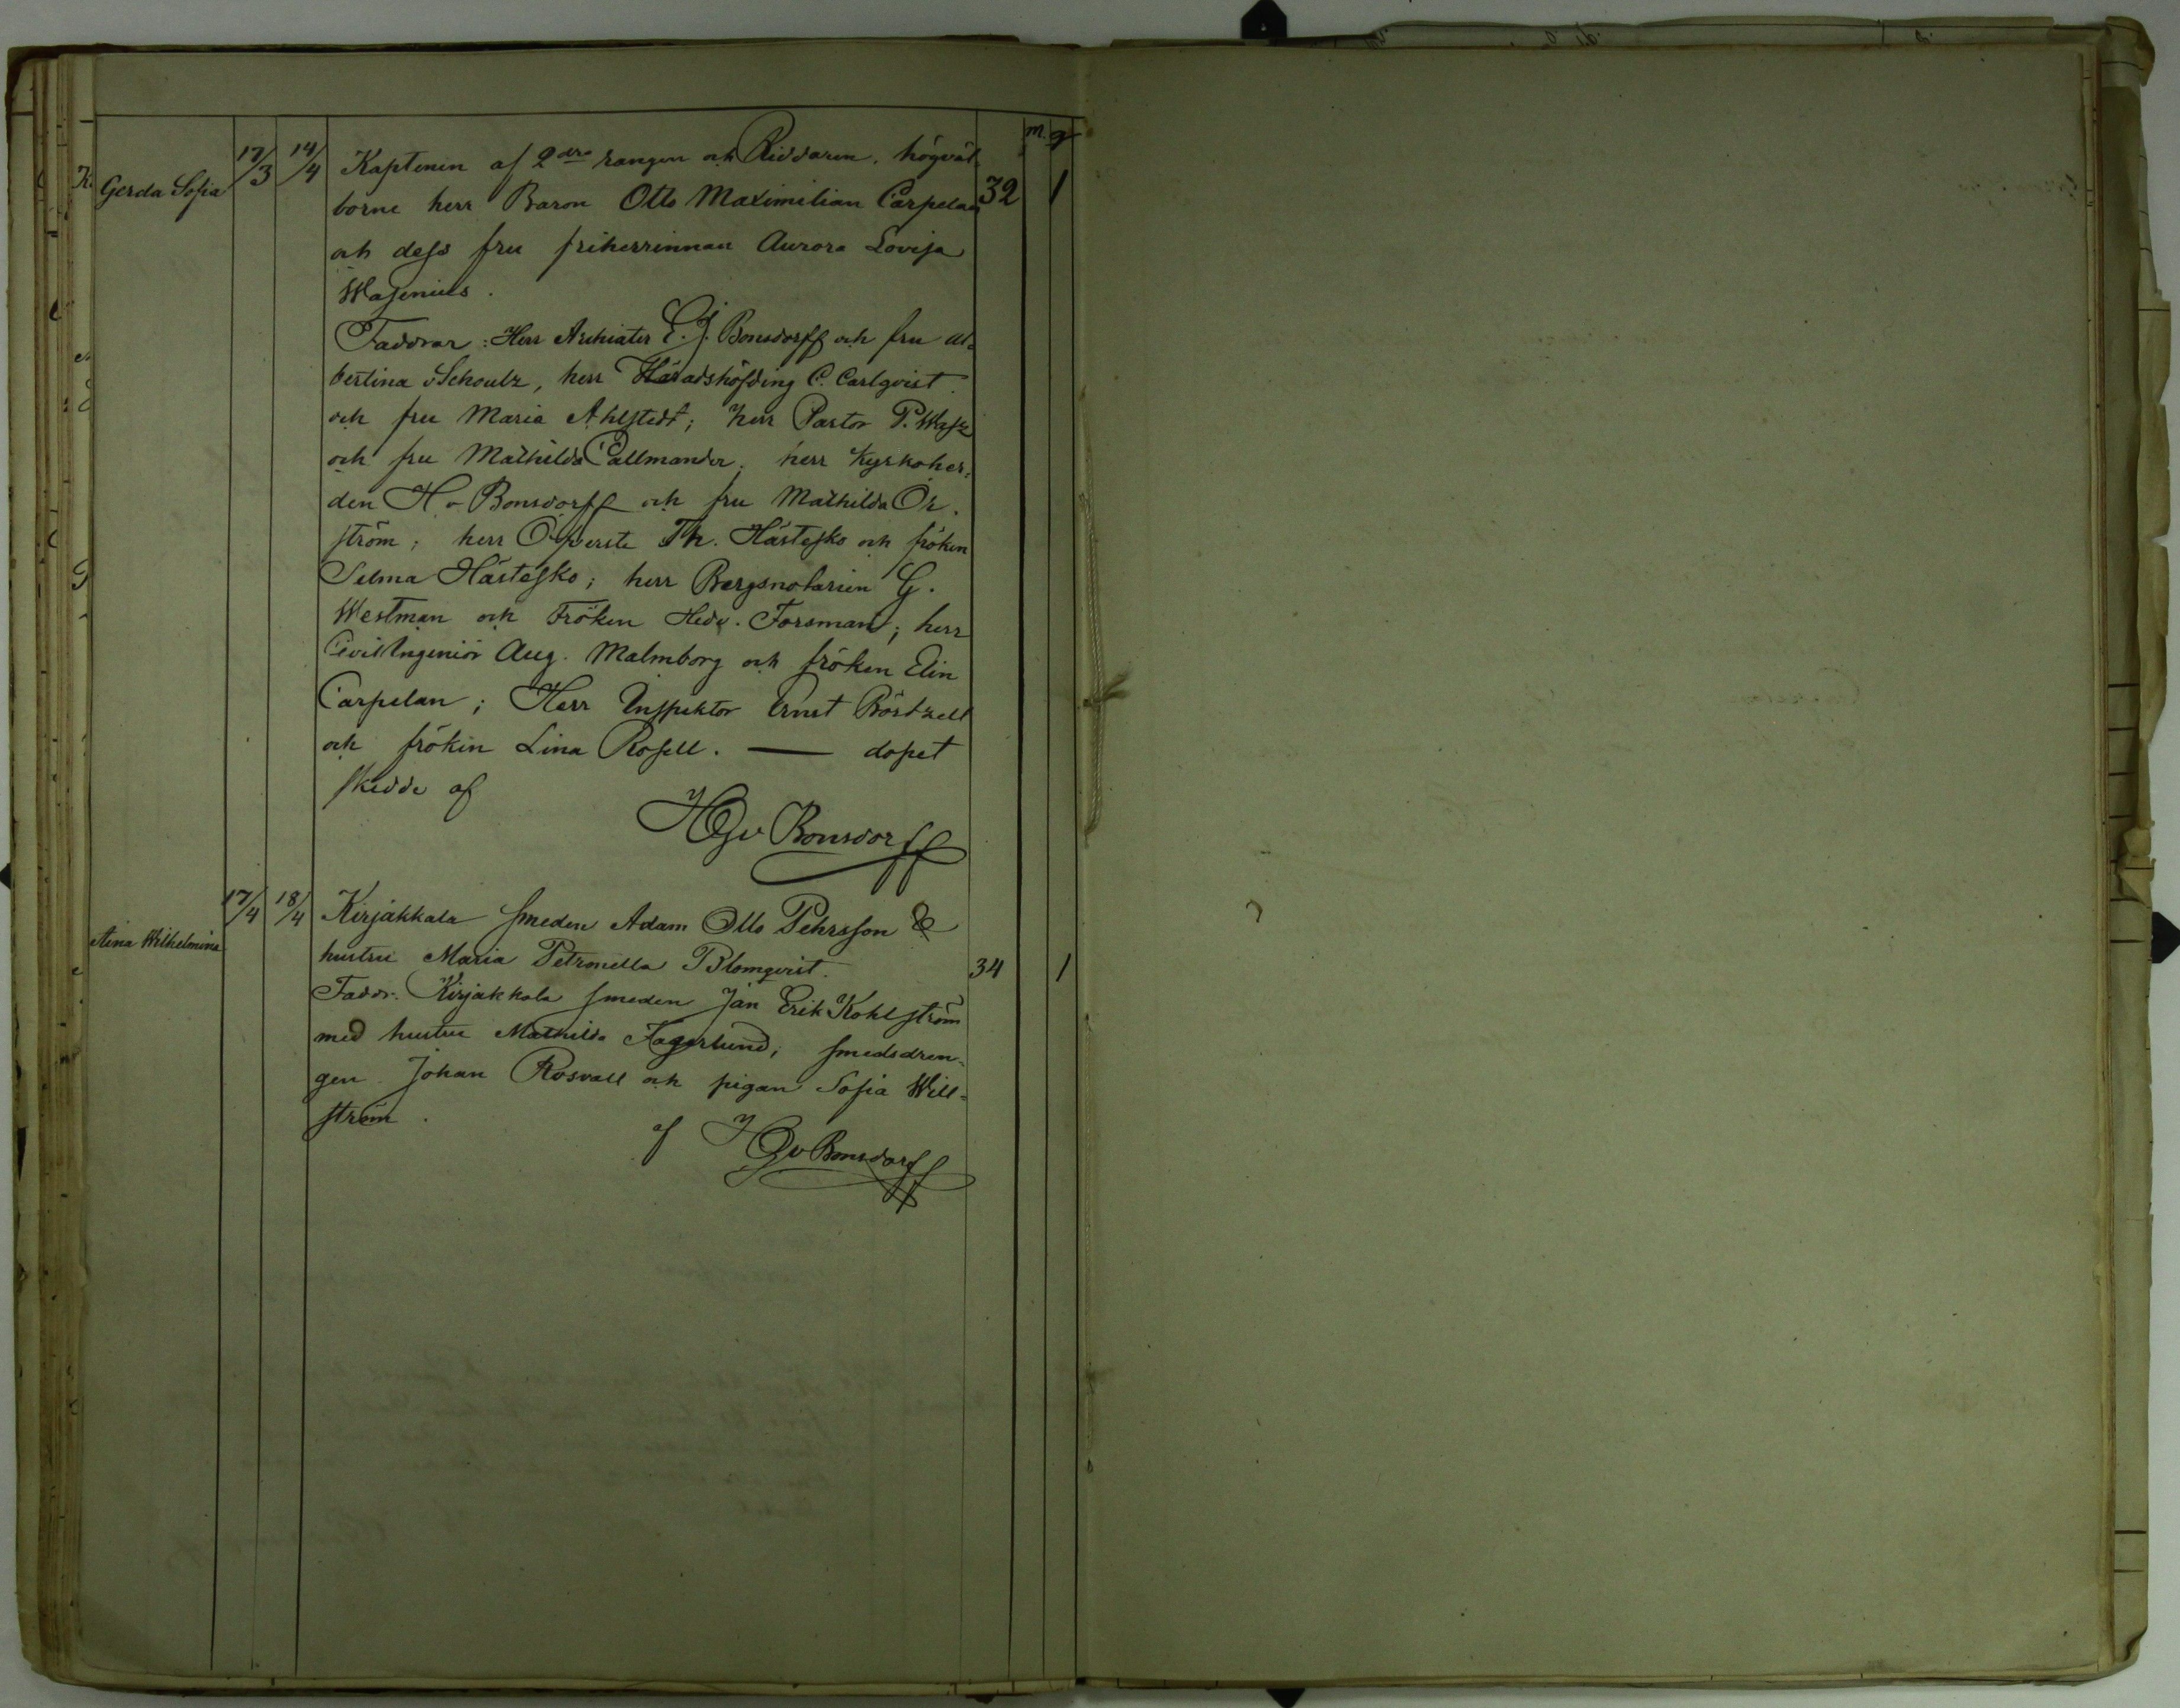 m. q
Gerda Sofia 17/3 14/4 Kaptenen af 2dra rangen och Riddaren, högväl
borne herr Baron Otto Maximilian Carpelan 32 1
och dess fru friherrinnan Aurora Lovisa
Wasenius.
Faddrar: Herr Archiater E. J. Bonsdorff och fru Al-
bertina v Schoultz, herr Häradshöfding C. Carlqvist
och fru Maria Ahlstedt; herr Pastor P.
och fru Mathilda Pallmander; herr Kyrkoher-
den H. v Bonsdorff och fru Mathilda Ör-
ström; herr Öfverste Th. Hästesko och fröken
Selma Hästesko; herr Bergsnotarien G.
Westman och Fröken Hedv. Forsman; herr
Civil Ingeniör Aug. Malmborg och fröken Elin
Carpelan; Herr Inspektor Ernst Börtzell
och fröken Lina Rosell. — dopet
skedde af
HGv Bonsdorff
Aina Wilhelmina 17/4 18/4 Kirjakkala smeden Adam Otto Pehrsson &
hustru Maria Petronella Blomqvist. 34 1
Faddr. Kirjakkala smeden Jan Erik Kohlström
med hustru Mathilda Fagerlund; smedsdren-
gen Johan Rosvall och pigan Sofia Will-
ström.
af HGv Bonsdorff